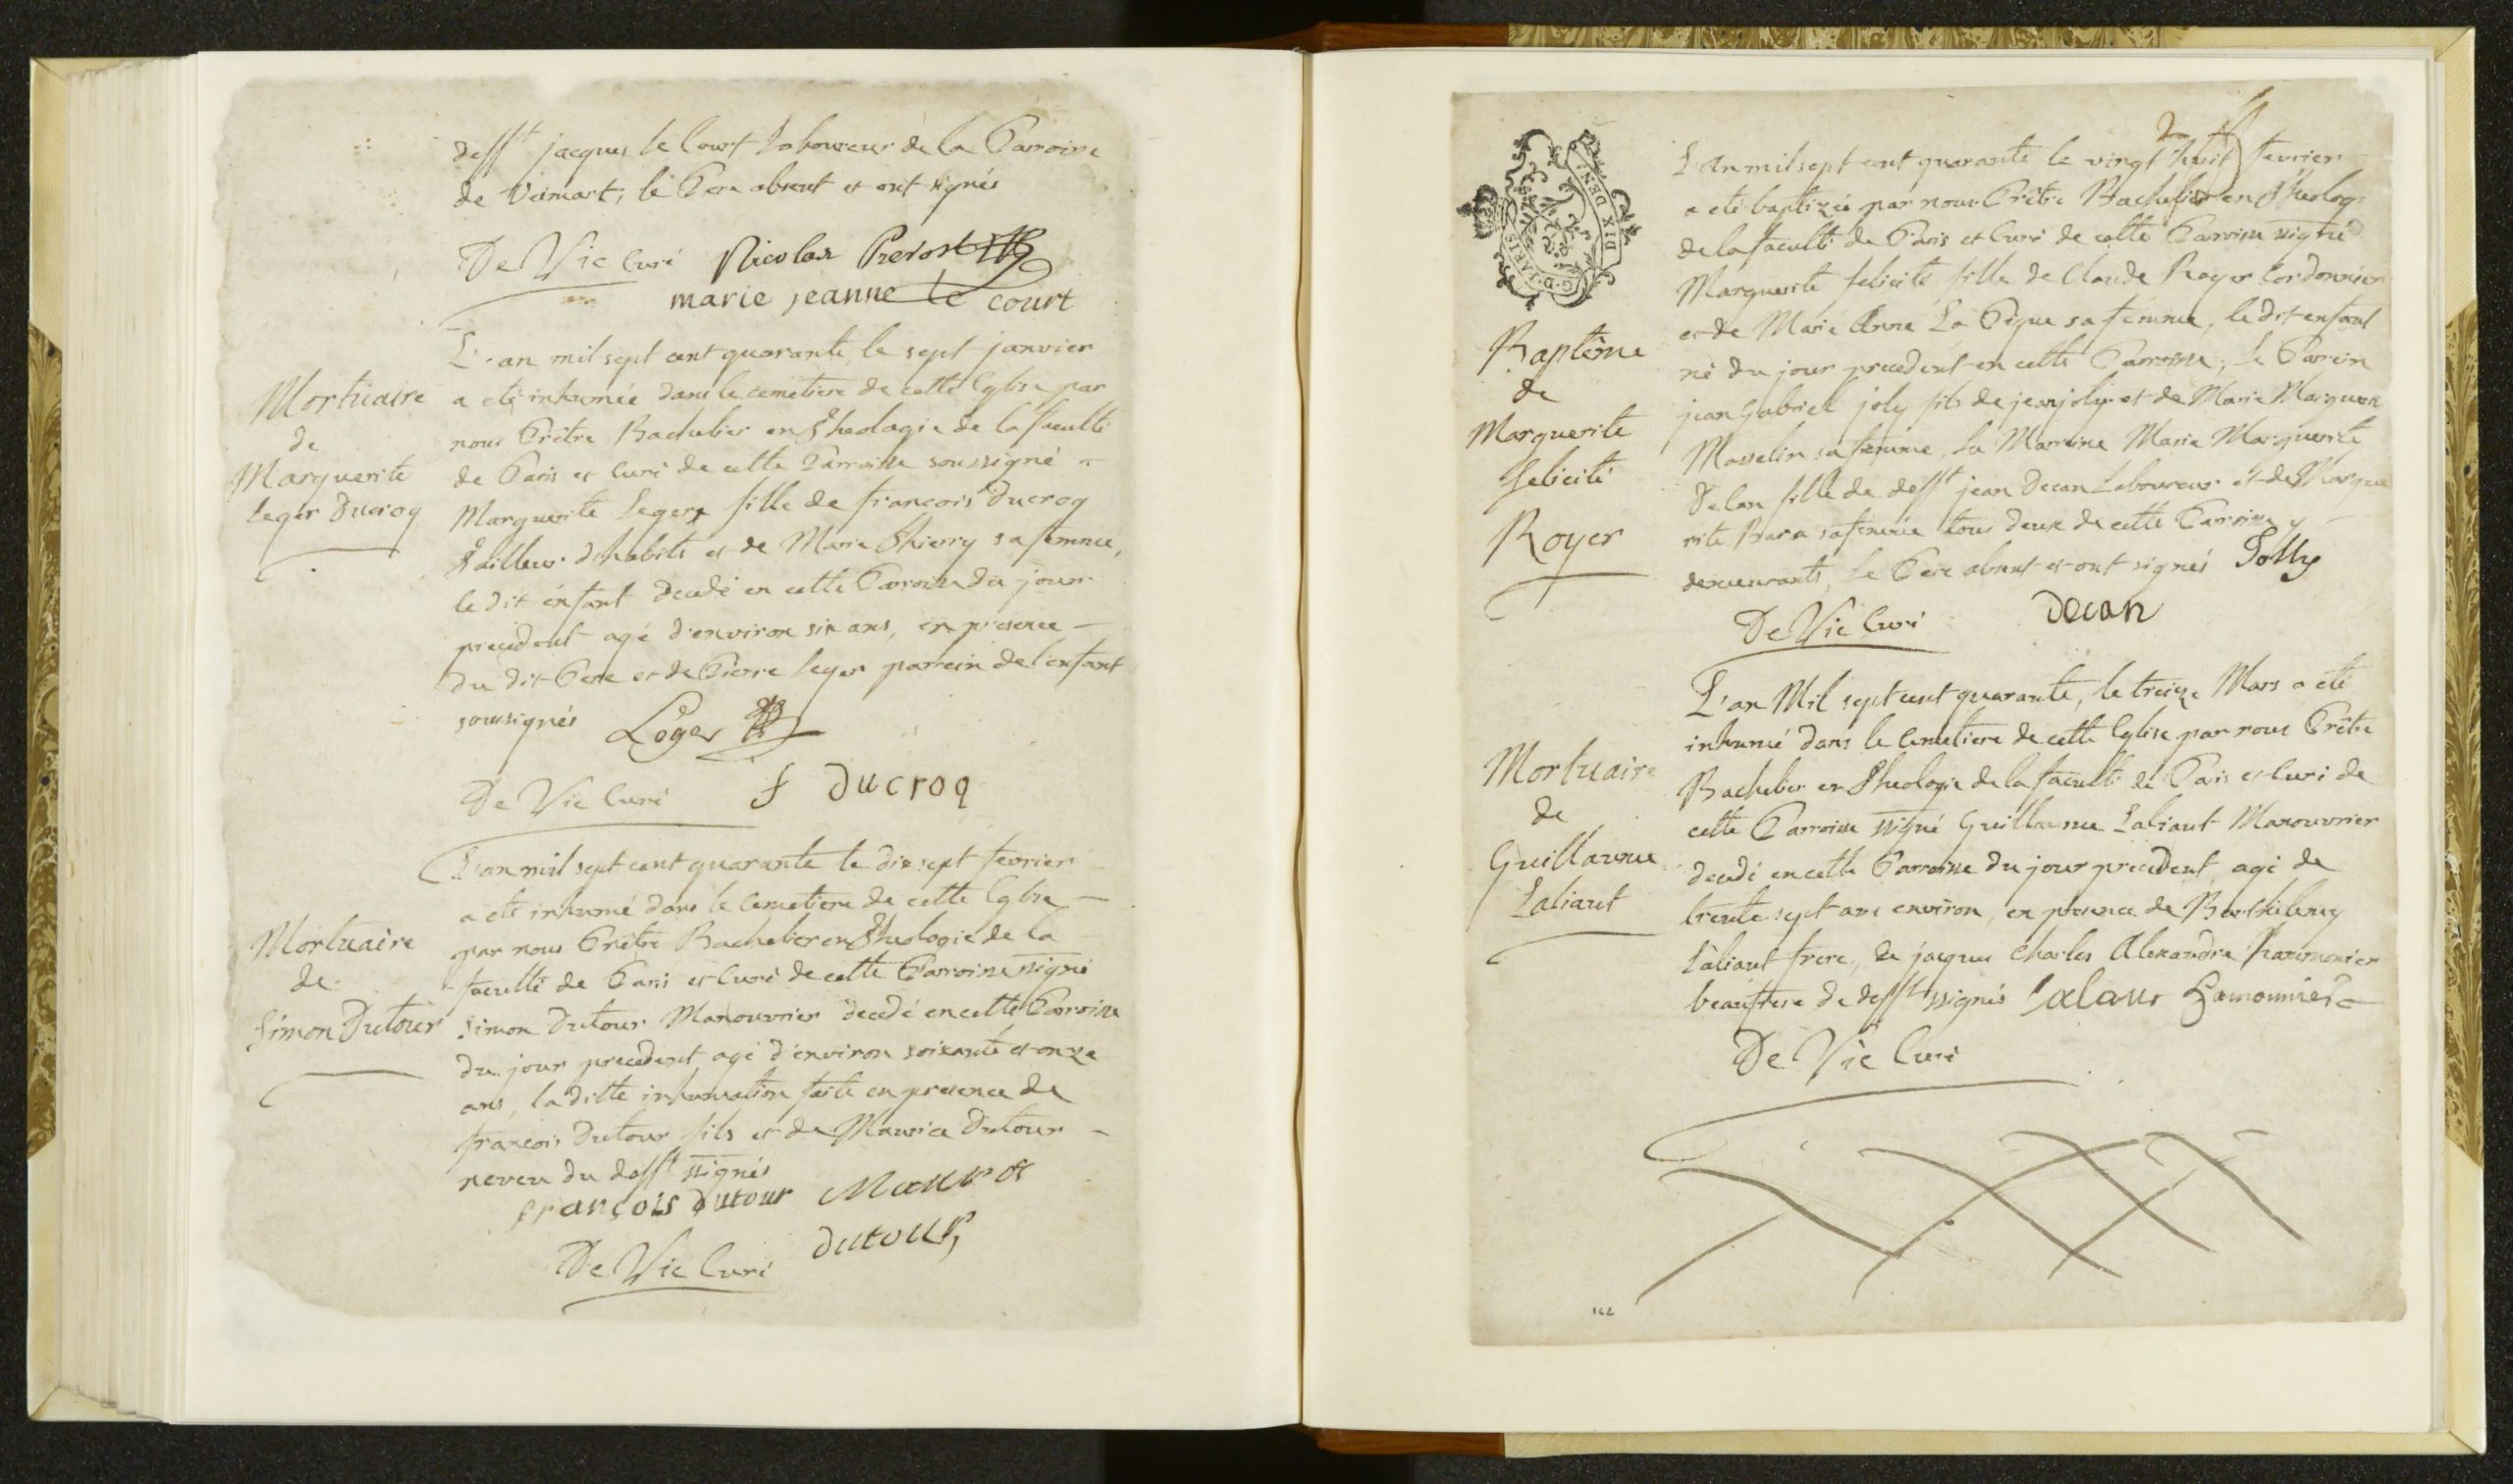 deff.t jacques le Court Laboureur de la Parroisse
de Veimart, le Pere absent et ont signés
De Vic Curé Nicolas Prevost
marie jeanne le court
Mortuaire
de
Marguerite
leger Ducroq
L'an mil sept cent quarante, le sept janvier
a eté inhumée dans le cemetiere de cette Eglise par
nous Prêtre Bachelier en Theologie de la faculté
de Paris et Curé de cette Parroisse soussigné
Marguerite Leger fille de francois Ducroq
Tailleur d'habits et de Marie Thierry sa femme,
le dit enfant decedé en cette Parroisse du jour
precedent agé d'environ six ans, en presence
du dit Pere et de Pierre leger parrein de l'enfant
soussignés Léger
De Vic Curé f Ducroq
Mortuaire
de
Simon Dutour
L'an mil sept cent quarante le dix sept fevrier
a eté inhumé dans le Cemetiere de cette Eglise
par nous Prêtre Bachelier en Theologie de la
faculté de Paris et Curé de cette Parroisse ssigné
Simon Dutour Manouvrier decedé en cette Parroisse
du jour precedent agé d'environ soixante et onze
ans, la ditte inhumation faite en presence de
francois Dutour fils et de Maurice Dutour
neveu du deff.t ssignés
françois dutour Maur
dutour
De Vic Curé
2
G.D. PARIS DIX DEN.
Baptême
de
Marguerite
felicité
Royer
L'An mil sept cent quarante le vingt huit fevrier
a eté baptizée par nous Prêtre Bachelier en Theolog.
de la faculté de Paris et Curé de cette Parroisse ssigné
Marguerite felicité fille de Claude Royer Cordonnier
et de Marie Anne La Pique sa femme, le dit enfant
né du jour precedent en cette Parroisse, le Parrein
jean Gabriel joly fils de jean joly et de Marie Marguerite
Masselin sa femme, La Marreine Marie Marguerite
fille de deff.t jean Decan Laboureur et de Margue
rite Bara sa femme tous deux de cette Parroisse y
demeurants, le Pere absent et ont signés Jolly
De Vic Curé Decan
Mortuaire
de
Guillaume
Laliaut
L'an Mil sept cent quarante, le treize Mars a eté
inhumé dans le Cemetiere de cette Eglise par nous Prêtre
Bachelier en Theologie de la faculté de Paris et Curé de
cette Parroisse ssigné Guillaume Laliaut Manouvrier
decedé en cette Parroisse du jour precedent, agé de
trente sept ans environ, en presence de Barthelemy
Laliaut frere, de jacques Charles Alexandre Hammonier
beaufrere de deff.t ssignés
De Vic Curé